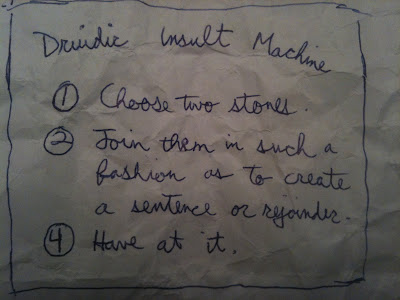 Druidic Insult Machine
① Choose two stones.
② Join them in such a
fashion as to create
a sentence or rejoinder.
④ Have at it.